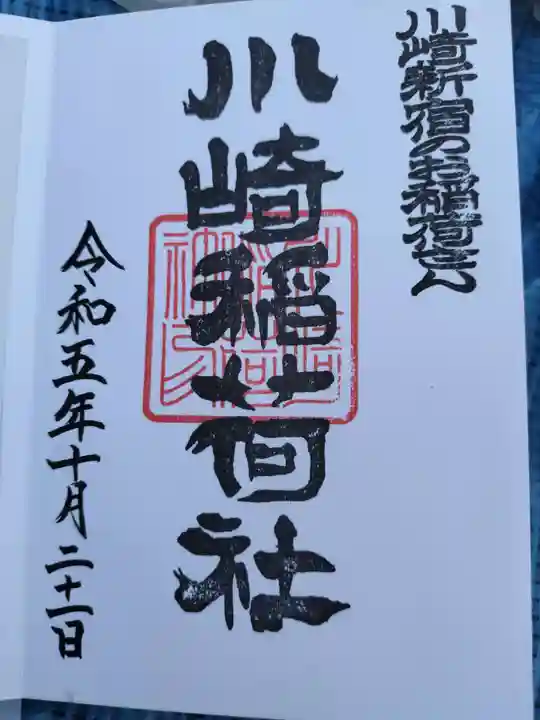 川崎新宿のお稲荷さん
川崎稲荷社
令和五年十月二十一日